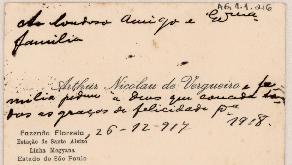 AG 1.1.216
Ao bondoso Amigo e Exma
familia
Arthur Nicolau de Vergueiro e fa-
milia pedem a Deus que conceda to-
dos as graças de felicidade pa
1918.
Fazenda Floresta
Estação de Santo Aleixo
Linha Mogyana
Estado de São Paulo
26-12-917